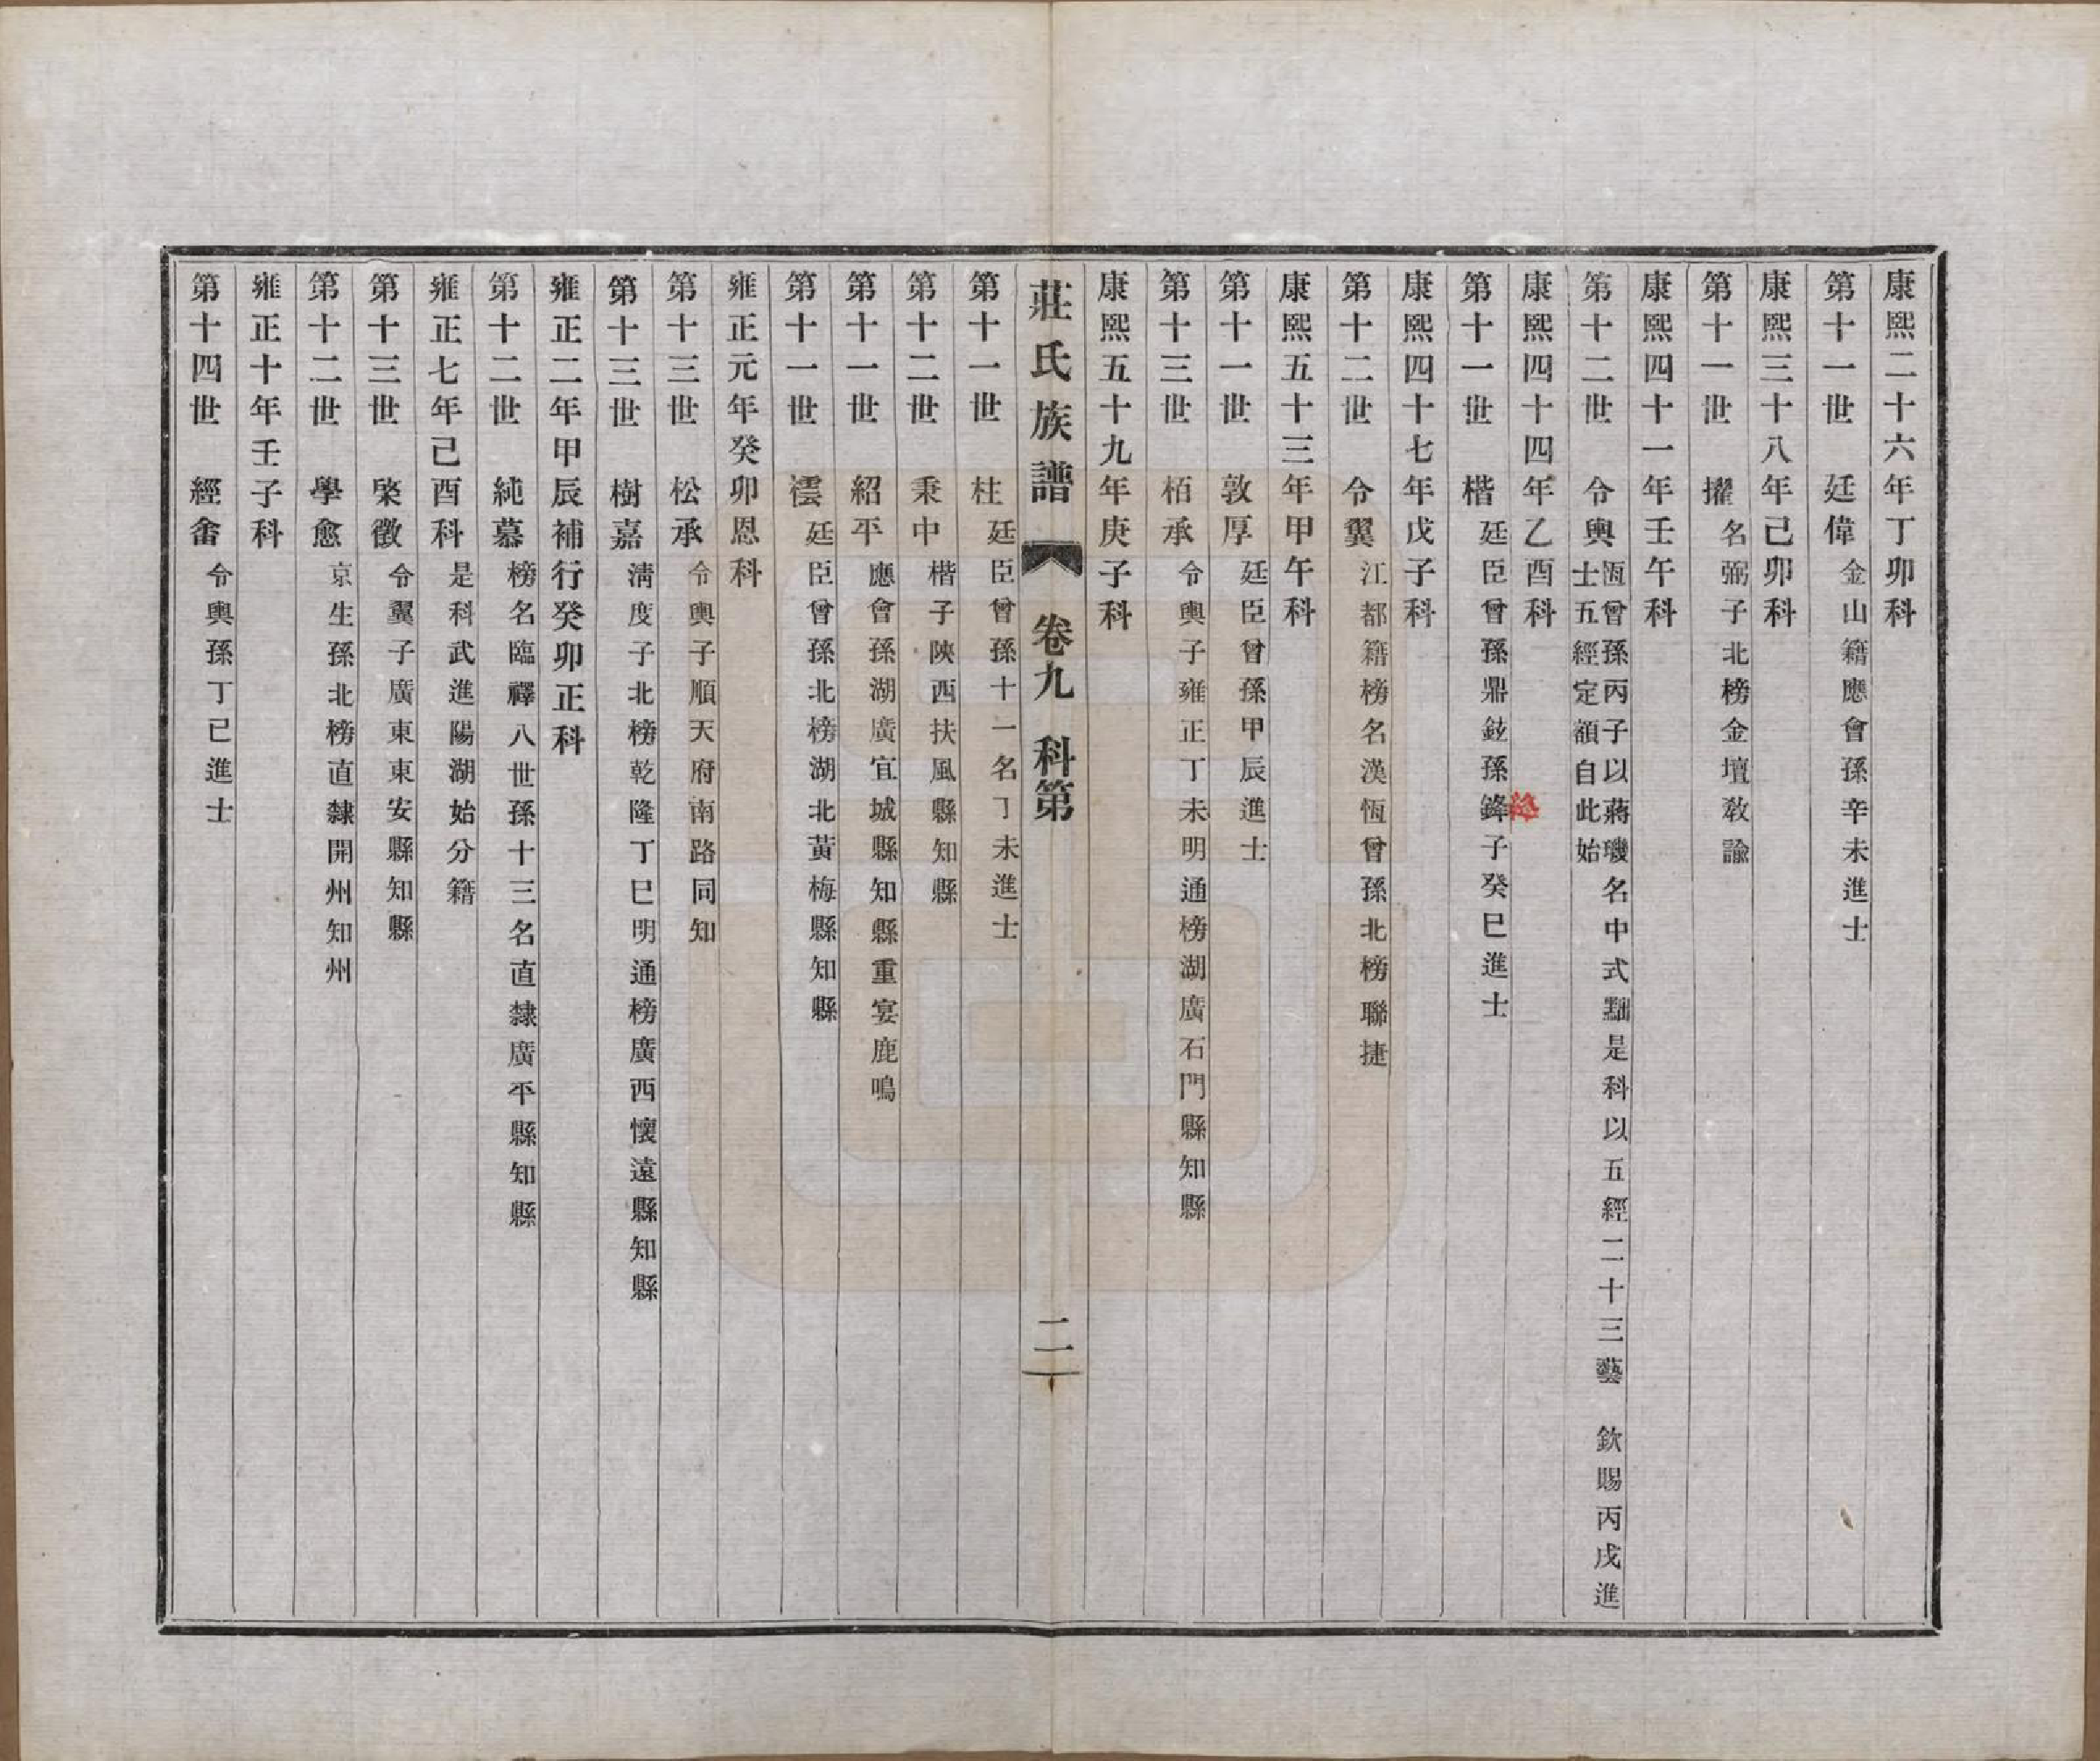 康熙二十六年丁卯科
第十一世　廷偉　金山籍應會孫辛未進士
康熙三十八年己卯科
第十一世　擢　名弼子北榜金壇教諭
康熙四十一年壬午科
第十二世　令輿　恆曾孫丙子以蔣璣名中式黜是科以五經二十三藝　欽賜丙戌進
士五經定額自此始
康熙四十四年乙酉科
第十一世　楷　廷臣曾孫鼎鉉孫鋒子癸巳進士
康熙四十七年戊子科
第十二世　令翼　江都籍榜名漢恆曾孫北榜聯捷
康熙五十三年甲午科
第十一世　敦厚　廷臣曾孫甲辰進士
第十三世　栢承　令輿子雍正丁未明通榜湖廣石門縣知縣
康熙五十九年庚子科
莊氏族譜　卷九　科第　二
第十一世　柱　廷臣曾孫十一名丁未進士
第十二世　秉中　楷子陝西扶風縣知縣
第十一世　紹平　應會孫湖廣宜城縣知縣重宴鹿鳴
第十一世　澐　廷臣曾孫北榜湖北黃梅縣知縣
雍正元年癸卯恩科
第十三世　松承　令輿子順天府南路同知
第十三世　樹嘉　清度子北榜乾隆丁巳明通榜廣西懷遠縣知縣
雍正二年甲辰補行癸卯正科
第十二世　純慕　榜名臨禪八世孫十三名直隸廣平縣知縣
雍正七年己酉科　是科武進陽湖始分籍
第十三世　棨徵　令翼子廣東東安縣知縣
第十二世　學愈　京生孫北榜直隸開州知州
雍正十年壬子科
第十四世　經畬　令輿孫丁巳進士